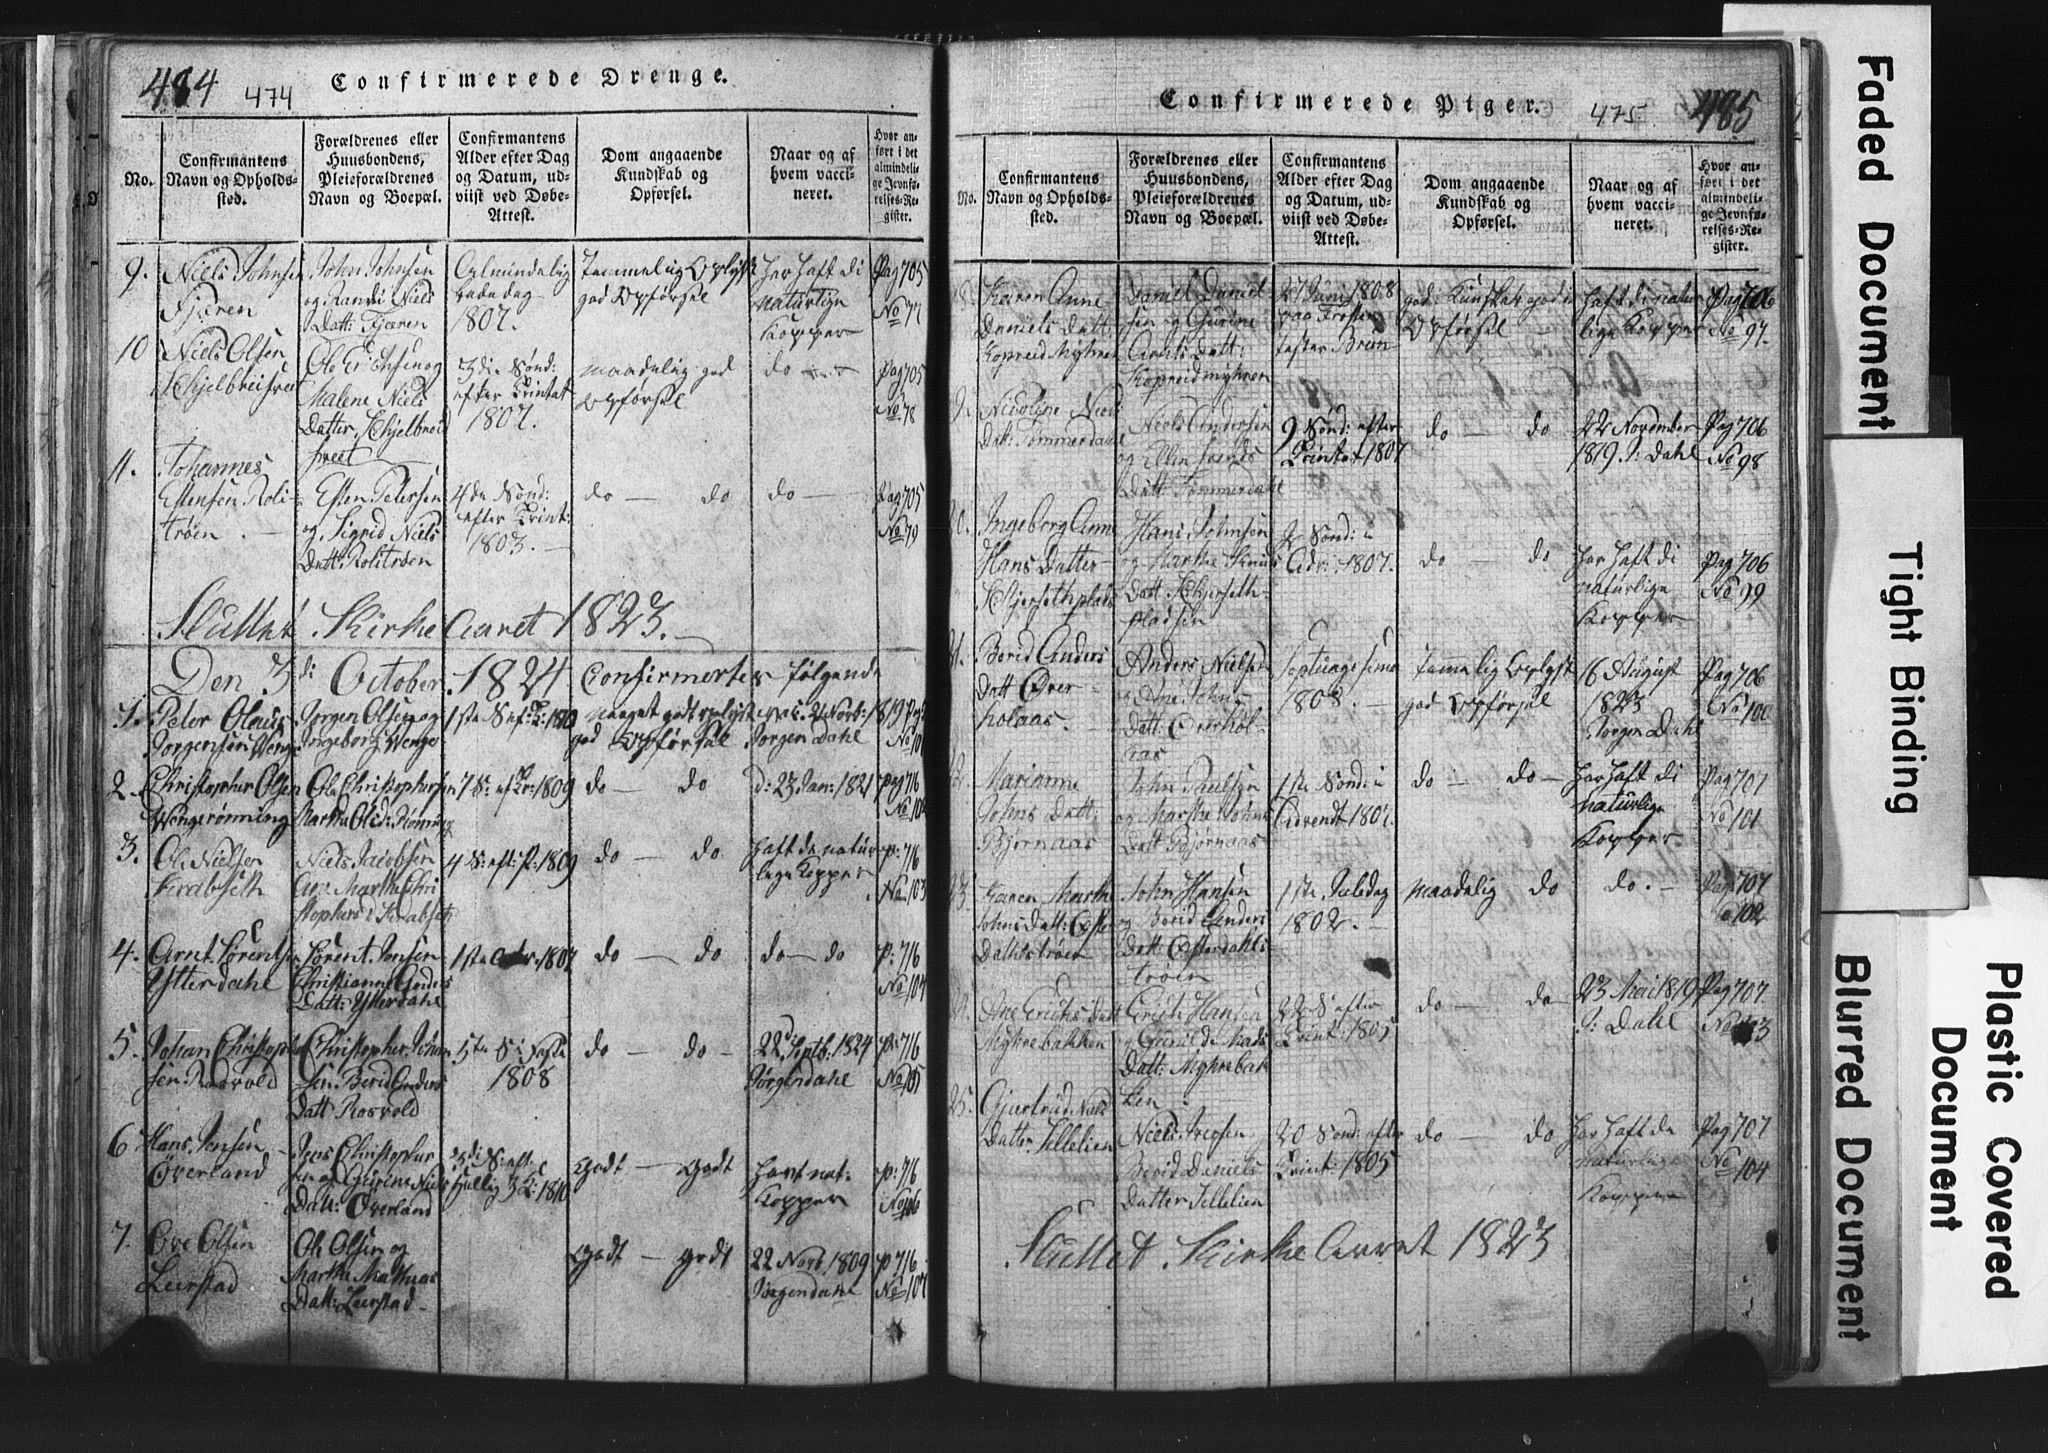 484 474 Confirmerede Drenge.
No.
Confirmantens
Navn og Opholds-
sted.
Forældrenes eller
Huusbondens,
Pleieforældrenes
Navn og Boepæl.
Confirmantens
Alder efter Dag
og Datum, ud-
viist ved Døbe-
Attest.
Dom angaaende
Kundskab og
Opførsel.
Naar og af
hvem vacci-
neret.
Hvor an-
ført i det
almindeli-
ge Jevnfø-
relses-Re-
gister.
9.
Niels Johnsen
Fjæren
John Johnsen
og Randi Niels
Datt: Fjæren
Almindelig
bededag
1807.
Tammelig Oplyst
god Opførsel
har haft di
naturlige
Kopper
Pag 705
No 77
10
Niels Olsen
Ole Erichsen og
Malene Niels
Datter
3die Sønd:
efter Trinitat
1807.
maadelig god
Opførsel
do
Pag 705
No 78
11.
Johannes
Estensen Roli-
trøen
Esten Petersen
og Sigrid Niels
Datt: Rolitrøen
4de Sønd:
efter Trinit:
1803.
do — do
do —
Pag 705
No 79
Sluttet Kirke Aaret 1823.
Den 3di October 1824 Confirmertes følgende
1.
Peter Olaus
Jørgensen Wenge
Jørgen Olsen og
Ingeborg Wenge
Jørgen Dahl
2.
Christopher Olsen
Wengerønning
Ole Christophersen
7 S: ef Tr: 1809
do — do
D: 23 Jan: 1821
pag 716
No 102
3.
Ole Nielsen
Krabseth
Niels Jacobsen
4 S: eft: P: 1809
do — do
haft de natur
lige Kopper
p: 716
No 103
4.
Arnt Sørentsen
Ytterdahl
Sørent Jensen
Christianna Anders
Datt: Ytterdahl
do — do
do — do
p: 716
No 104
5.
Johan Christoph
sen Rosvold
Christopher Johan
sen Berid Anders
Datt Rosvold
5te S: i Faste
1808
do — do
22d Septb: 1824
Jørgen Dahl
p: 716
No 105
6
Hans Jensen
Overland
Jens Christopher
sen og Gurine Niels
Datt: Overland
Godt — Godt
havt nat.
Kopper
p: 716
No 106
7.
Ove Olsen
Leirstad
Ole Olsen og
Marthe Mathias
Datt: Leirstad
Godt — godt
22 Novb. 1809
Jørgen Dahl
p 716
No 107
Confirmerede Piger. 475 485
No.
Confirmantens
Navn og Opholds-
sted.
Forældrenes eller
Huusbondens,
Pleieforældrenes
Navn og Boepæl.
Confirmantens
Alder efter Dag
og Datum, ud-
viist ved Døbe-
Attest.
Dom angaaende
Kundskab og
Opførsel.
Naar og af
hvem vacci-
neret.
Hvor an-
ført i det
almindeli-
ge Jevnfø-
relses-Re-
gister.
Karen Anne
Daniels Datt:
Kopreidmyhren
Daniel Daniel
sen og Gurine
Arnts Datt:
Kopreidmyhren
27 Juni 1808
god Kundskab god
Opførsel
haft di natur
lige Kopper
Pag 706
No 97.
Nicoline Niels
Datt: Tømmerdahl
Niels Andersen
og Ellen Svends
Datt: Tømmerdahl
9 Sønd: efter
Trinitat 1807
do — do
22 November
1819 J: Dahl
Pag 706
No 98
20.
Ingeborg Anne
Hans Datter
Hans Johnsen
2 Sønd: i
Adv: 1807.
do — do
har haft di
naturlige
Kopper
Pag 706
No 99
21.
Berid Anders
Datt Over-
holaas
Anders Nielsen
og Ane Johns
Datt: Overhol-
aas
Septuagesima
1808.
Tamelig Oplyst
god Opførsel
16 August
1823
Jørgen Dahl
Pag 706
No 100
22.
Marianne
Johns Datt:
Bjørnaas
John Paulsen
og Marthe Johns
Datt Bjørnaas
1ste Sønd: i
Advendt 1807.
do — do
har haft di
naturlige
Kopper
Pag 707
No 101
23.
Karen Marthe
Johns Datt: Øster
Dahlstrøen
John Hansen
og Berid Anders
Datt: Østerdahls-
trøen
1ste Juledag
1802. —
maadelig do
do. —
Pag 707
No 102
24.
Ane Erichs Datt
Myhrebakken
Erich Hansen
og Gunild Mads
Datt: Myhrebak
ken
22 S: efter
Trinit: 1805
do — do
23 Mai 1819
J: Dahl
Pag 707.
No 103
25.
Gjertrud Niels
Datter Lillelien
Niels Iversen
Berid Daniels
Datter Lillelien
20 Sønd: efter
Trinit: 1805
do — do
har haft de
naturlige
Kopper
Pag 707
No 104
Sluttet Kirke Aaret 1823
Faded Document
Tight Binding
Blurred Document
Plastic Covered
Document